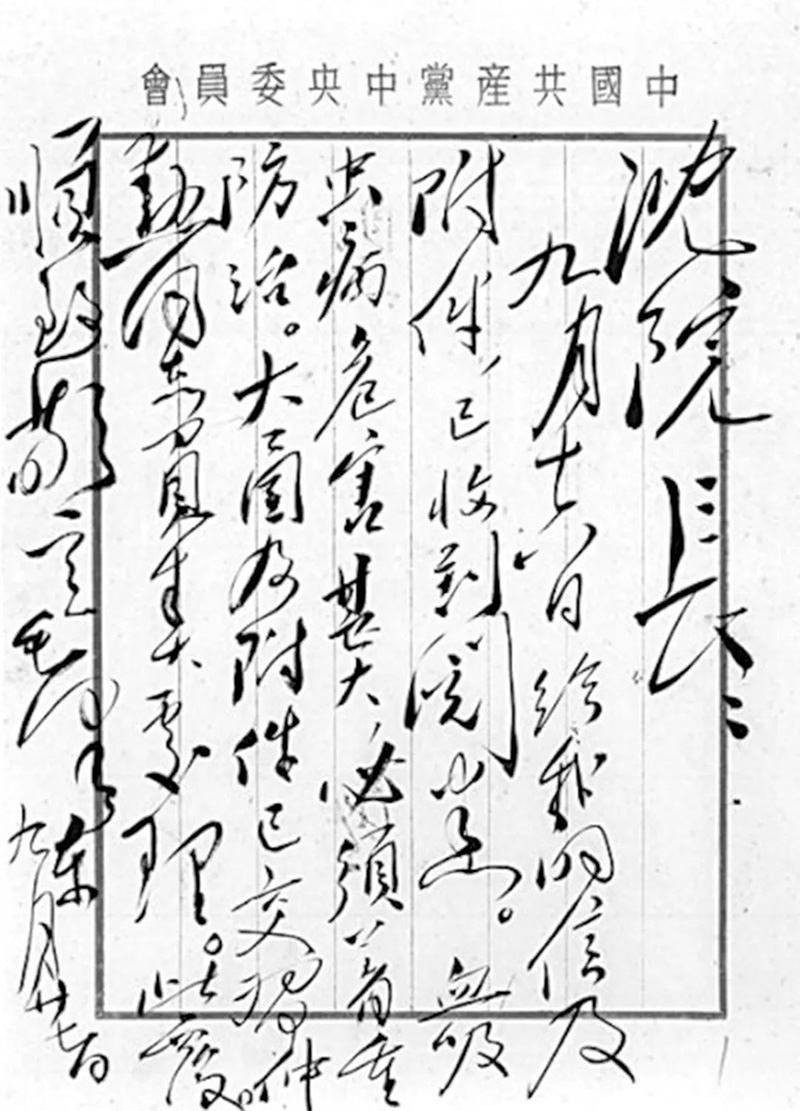 中國共産黨中央委員會
沈院長：
九月十六日給我的信及
附件，已收到閱悉。血吸
虫病危害甚大，必須着重
防治。大函及附件已交習仲
勳同志負責處理。此復。
順致敬意 毛澤東 九月廿七日